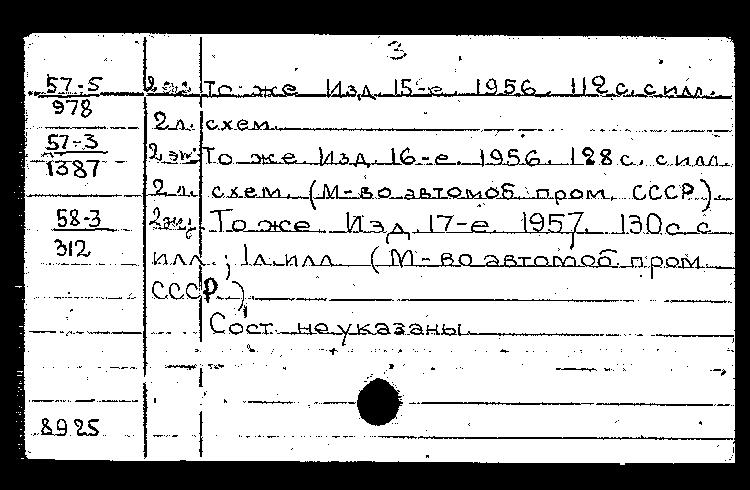 3
57-5 2 экз То же Изд. 15-е. 1956. 112 с. с илл.
978 2 л. схем.
57-3 2 эк. То же. Изд. 16-е. 1956. 128 с. с илл.
1387 2 л. схем. (М-во автомоб. пром. СССР).
58-3 2 экз. То же Изд. 17-е. 1957. 130 с. с
312 илл.; 1 л. илл. (М-во автомоб. пром.
СССР.)
Сост. не указаны.
8925